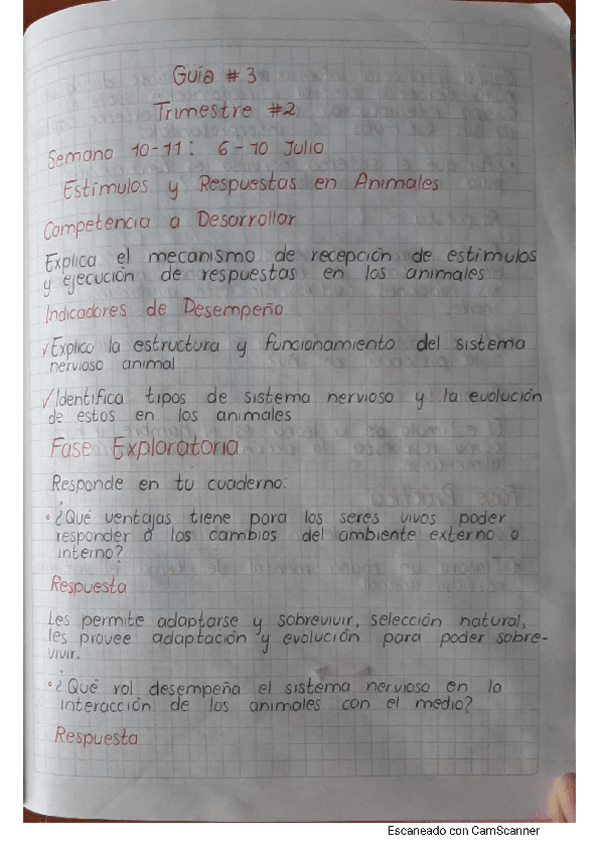 Guia # 3
Trimestre #2
Semana 10-11: 6-10 Julio
Estímulos y Respuestas en Animales
Competencia a Desarrollar
Explica el mecanismo de recepción de estímulos
y ejecución de respuestas en los animales
Indicadores de Desempeño
✓Explico la estructura y funcionamiento del sistema
nervioso animal
✓Identifica tipos de sistema nervioso y la evolución
de estos en los animales
Fase Exploratoria
Responde en tu cuaderno:
• ¿Qué ventajas tiene para los seres vivos poder
responder a los cambios del ambiente externo o
interno?
Respuesta
Les permite adaptarse y sobrevivir, selección natural,
les provee adaptación y evolución para poder sobre-
vivir.
• ¿Qué rol desempeña el sistema nervioso en la
interacción de los animales con el medio?
Respuesta
Escaneado con CamScanner